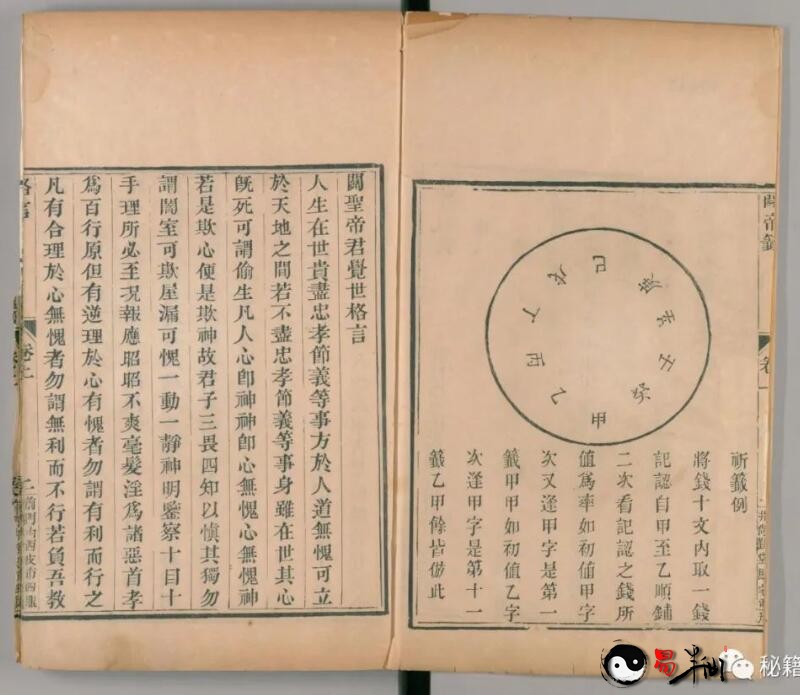 關帝籤
卷
甲
乙
丙
丁
戊
己
庚
辛
壬
癸
祈籤例
將錢十文內取一錢
記認自甲至乙順鋪
二次看記認之錢所
值爲率如初值甲字
次又逢甲字是第一
籤甲甲如初值乙字
次逢甲字是第十一
籤乙甲餘皆倣此
關聖帝君覺世格言
人生在世貴盡忠孝節義等事方於人道無愧可立
於天地之間若不盡忠孝節義等事身雖在世其心
旣死可謂偷生凡人心卽神神卽心無愧心無愧神
若是欺心便是欺神故君子三畏四知以愼其獨勿
謂闇室可欺屋漏可愧一動一靜神明鑒察十目十
手理所必至況報應昭昭不爽毫髮淫爲諸惡首孝
爲百行原但有逆理於心有愧者勿謂有利而行之
凡有合理於心無愧者勿謂無利而不行若負吾教
格言
卷上
二
秘籍